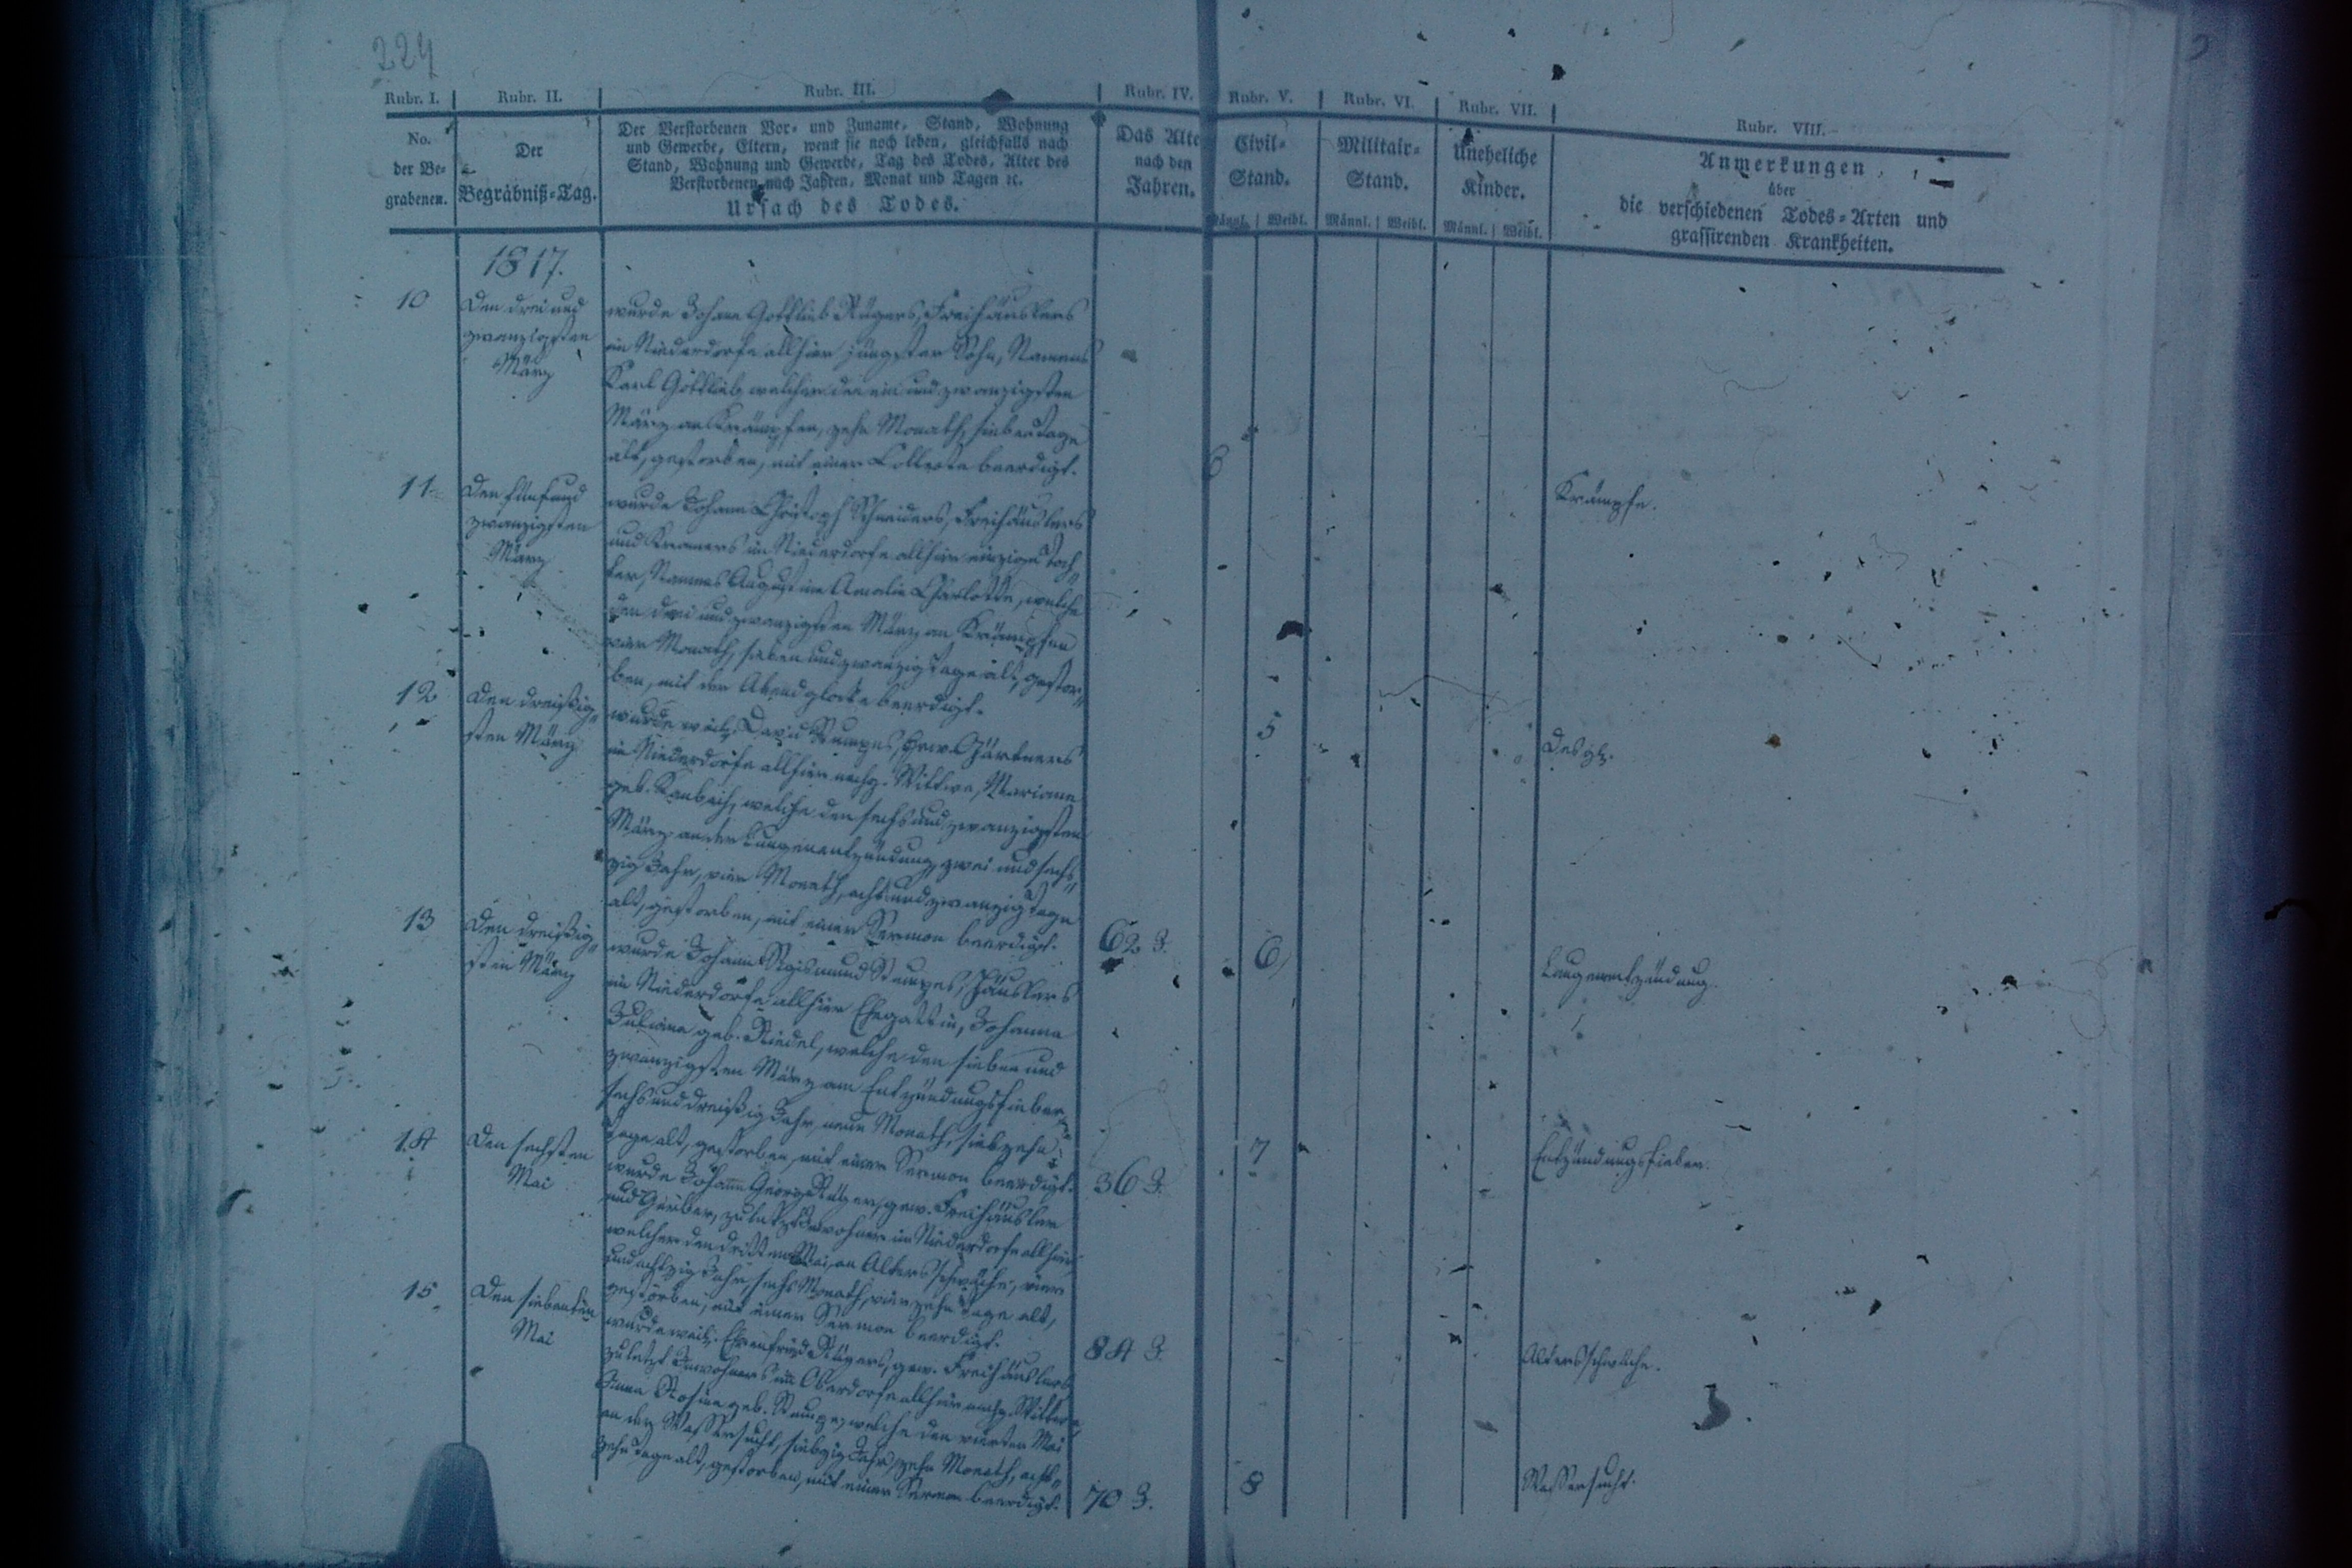 224
Rubr. I. Rubr. II. Rubr. III. Rubr. IV. Rubr. V. Rubr. VI. Rubr. VII. Rubr. VIII.
No.
der Be-
grabenen.
Der
Begräbniß-Tag.
Der Verstorbenen Vor- und Zuname, Stand, Wohnung
und Gewerbe, Eltern, wenn sie noch leben, gleichfalls nach
Stand, Wohnung und Gewerbe, Tag des Todes, Alter des
Verstorbenen nach Jahren, Monat und Tagen ꝛc.
Ursach des Todes.
Das Alte
nach den
Jahren.
Civil-
Stand.
Männl. Weibl.
Militair-
Stand.
Männl. Weibl.
Uneheliche
Kinder.
Männl. Weibl.
Anmerkungen
über
die verschiedenen Todes-Arten und
grassirenden Krankheiten.
1817.
10
Den drei und
zwanzigsten
März
wurde Johann Gottlieb Rügers, Freihäuslers
im Niederdorfe allhier jüngster Sohn, Namens
Karl Gottlieb, welcher den ein und zwanzigsten
März an Krämpfen, zehn Monath, sieben Tage
alt, gestorben, mit einer Collecte beerdigt.
6
Krämpfe.
11.
Den fünf und
zwanzigsten
März
wurde Johann Christoph Schneiders, Freihäuslers
und Kramers im Niederdorfe allhier einzige Toch„
ter, Namens Augustine Amalie Charlotte, welche
den drei und zwanzigsten März an Krämpfen
vier Monath, sieben und zwanzig Tage alt, gestor„
ben, mit der Abendglocke beerdigt.
5
Desgl.
12
Den dreißig„
sten März
wurde weil. David Stumpes, gew. Gärtners
im Niederdorfe allhier nachg. Wittwe, Mariane
geb. welche den sechs und zwanzigsten
März an der Lungenentzündung, zwei und sech„
zig Jahr, vier Monath, acht und zwanzig Tage
alt, gestorben, mit einer Sermon beerdigt.
62 J.
6
Lungenentzündung.
13
Den dreißig„
sten März
wurde Johann Sigismund Stumpes, Häuslers
im Niederdorfe allhier Ehegattin, Johanna
Juliana geb. Riedel, welche den sieben und
zwanzigsten März am Entzündungsfieber,
sechs und dreißig Jahr, neun Monath, siebzehn
Tage alt, gestorben, mit einer Sermon beerdigt.
36 J.
7
Entzündungsfieber.
14
Den sechsten
Mai
wurde Johann Georg gew. Freihäusler
und Gerber, zuletzt Inwohner im Niederdorfe allhier,
welcher den dritten Mai, an Altersschwäche, vier
und achtzig Jahr, sechs Monath, vierzehn Tage alt,
gestorben, mit einer Sermon beerdigt.
84 J.
Altersschwäche.
15
Den siebenten
Mai
wurde weil. Ehrenfried Rügers, gew. Freihäuslers
zuletzt Inwohners im Oberdorfe allhier nachg. Wittwe,
Anna Rosina geb. Stumpe, welche den vierten Mai
an der Wassersucht, siebzig Jahr, zehn Monath, acht„
zehn Tage alt, gestorben, mit einer Sermon beerdigt.
70 J.
8
Wassersucht.